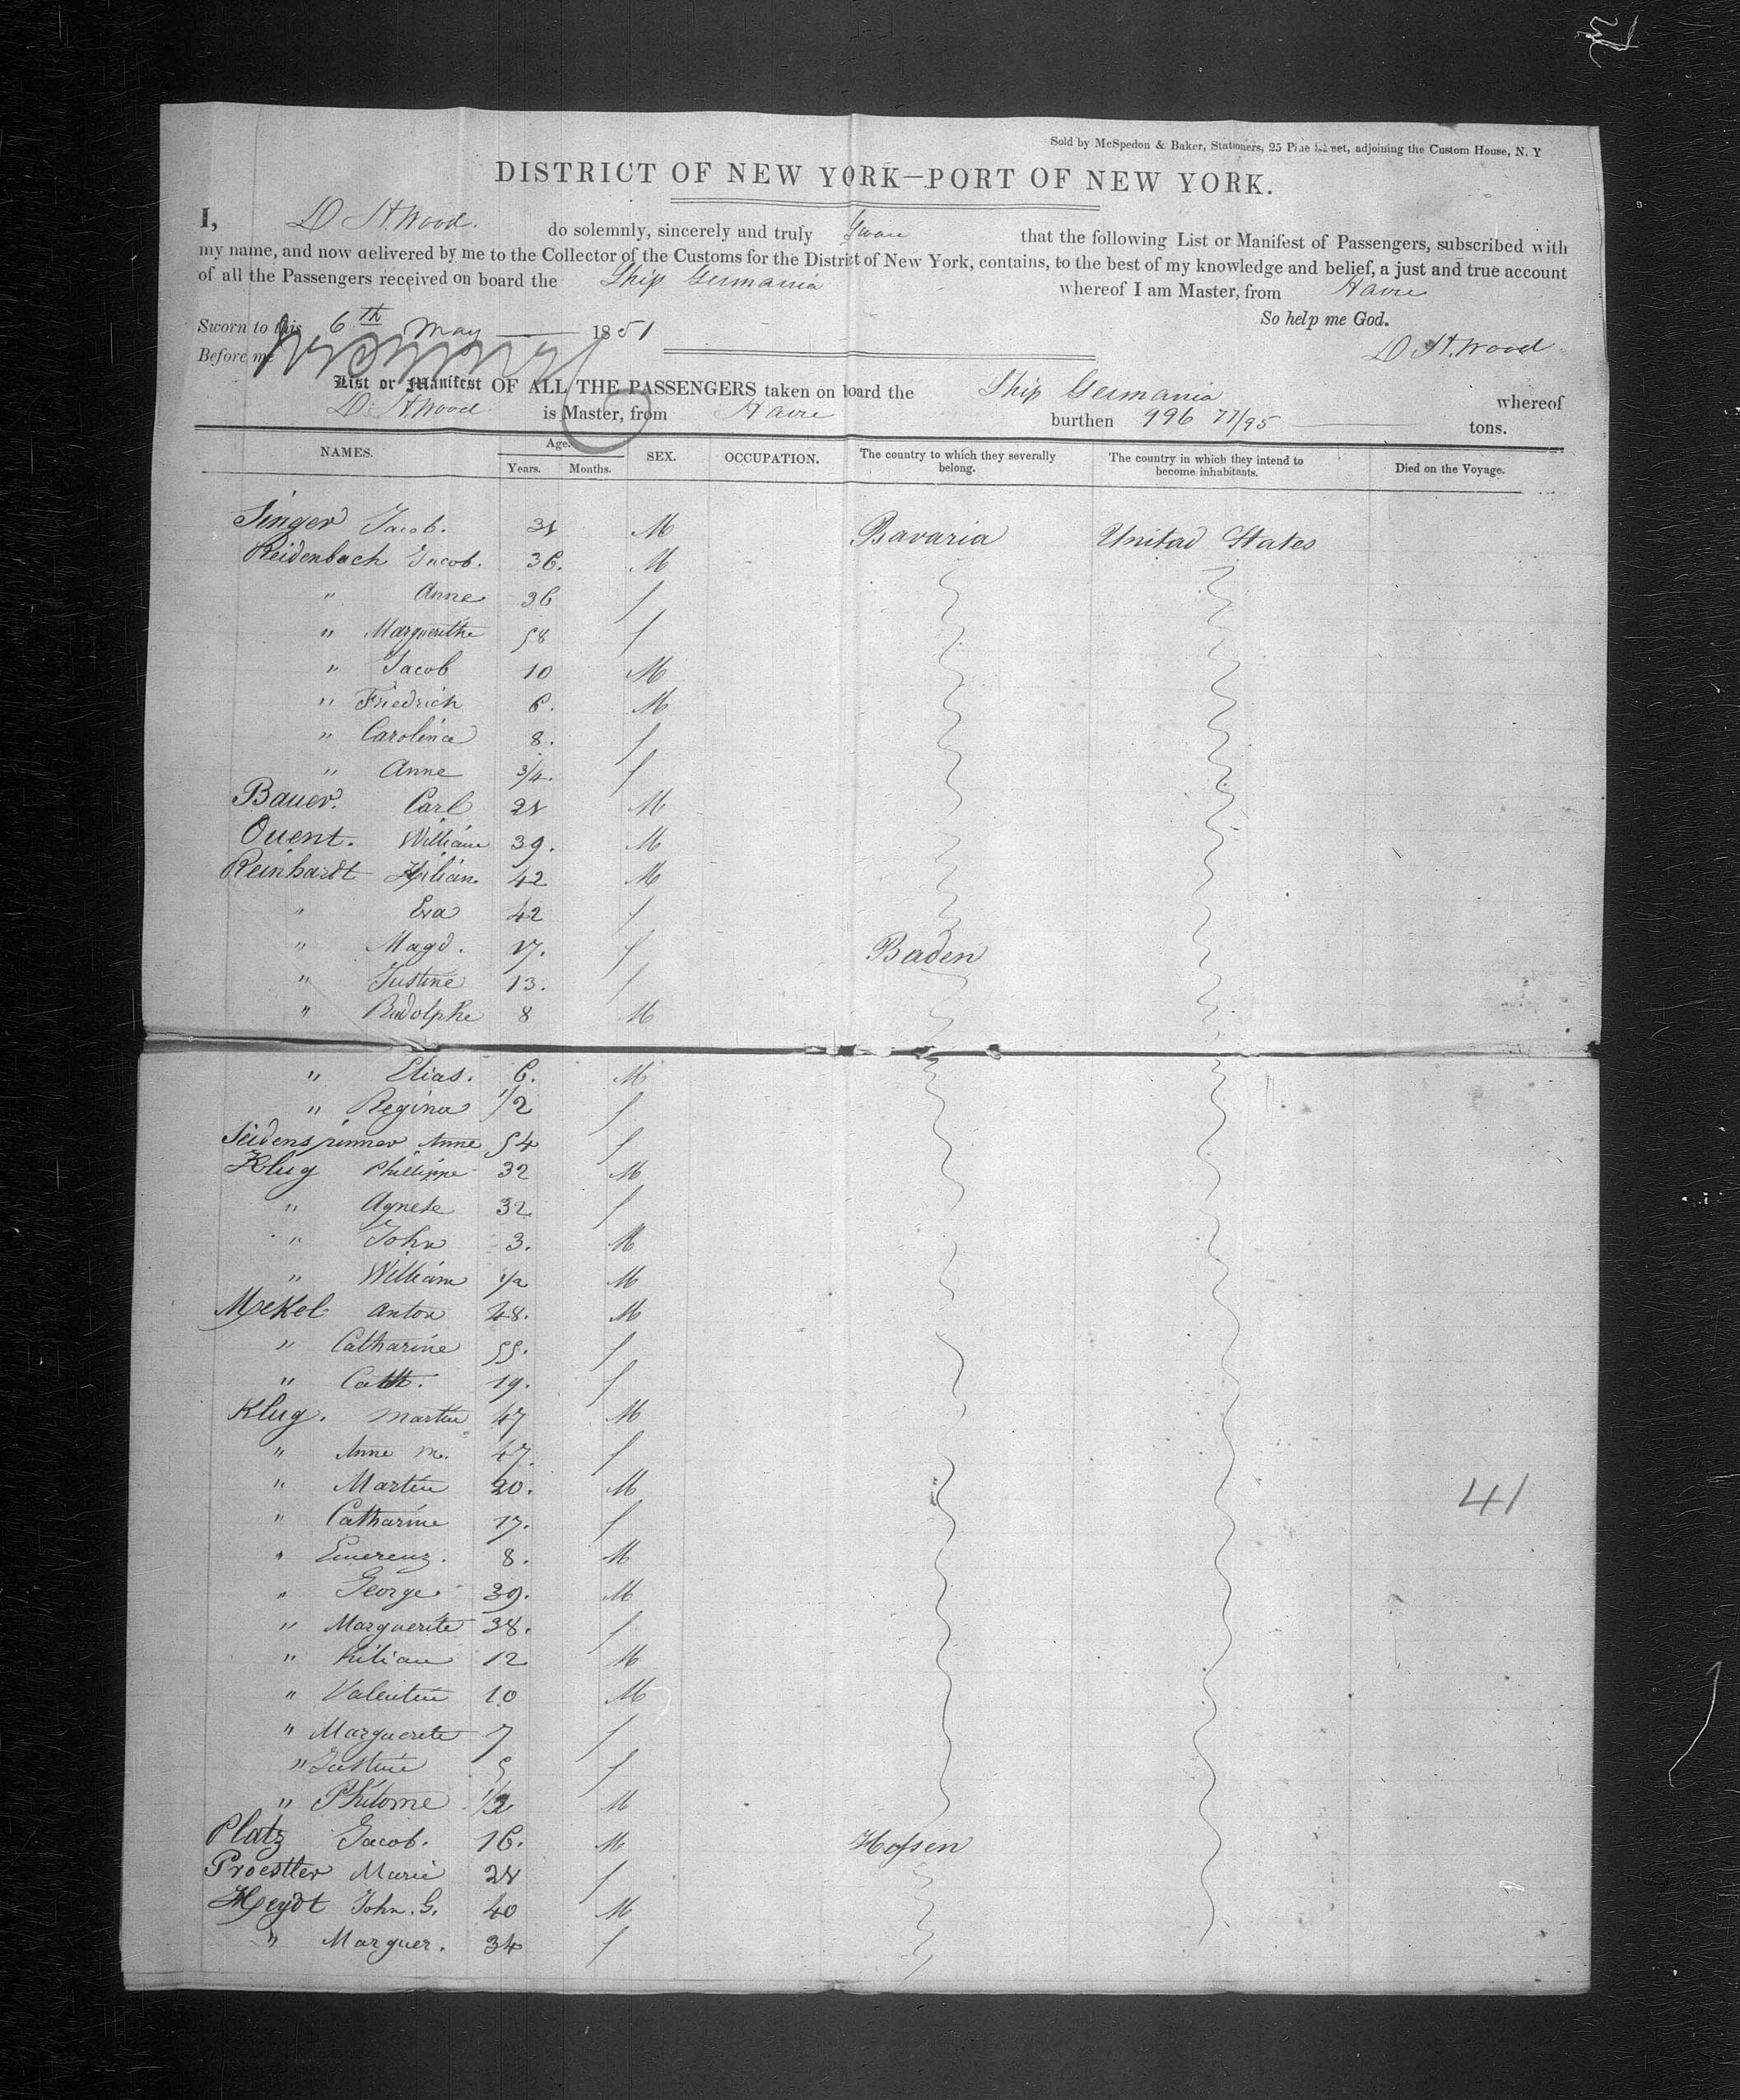 Sold by McSpedon & Baker, Stationers, 25 Pine Street, adjoining the Custom House, N. Y
DISTRICT OF NEW YORK—PORT OF NEW YORK.
I, D H. Wood. do solemnly, sincerely and truly Swear that the following List or Manifest of Passengers, subscribed with
my name, and now delivered by me to the Collector of the Customs for the District of New York, contains, to the best of my knowledge and belief, a just and true account
of all the Passengers received on board the Ship Germania whereof I am Master, from Havre
So help me God.
Sworn to this 6th May 1851
D H. Wood
Before me
List or Manifest OF ALL THE PASSENGERS taken on board the Ship Germania whereof
D. H Wood is Master, from Havre burthen 996 77/95 tons.
NAMES. Age. Years. Months. SEX. OCCUPATION. The country to which they severally belong. The country in which they intend to become inhabitants. Died on the Voyage.
Singer Jacob. 31 M Bavaria Unitad States
Reidenbach Jacob. 36. M
" Anne 36 f
" Marguerithe 58 f
" Jacob 10 M
" Friedrich 6. M
" Carolina 8. f
" Anne 3/4. f
Bauer. Carl 21 M
Ouent. William 39. M
Reinhardt Kilian 42 M
" Eva 42 f
" Magd. 17. f Baden
" Justine 13. f
" Rudolphe 8 M
" Elias. 6. M
" Regina 1/2 f
Seidenspinner Anne 54 f
Klug Phillippe 32 M
" Agnete 32 f
" John 3. M
" William 1/2 M
Mekel Anton 48. M
" Catharine 55. f
" Cath. 19. f
Klug. Martin 47 M
" Anne M. 47. f
" Martin 20. M
41
" Catharine 17. f
" Emerenz. 8. M
" George 39. M
" Marguerite 38. f
" Kilian 12 M
" Valentin 10 M
" Marguerite 7 f
" Justine 5 f
" Philome 1/2 M
Platz Jacob. 16. M Hessen
Proestler Marie 28 f
Heydt John. G. 40 M
" Marguer. 34 f